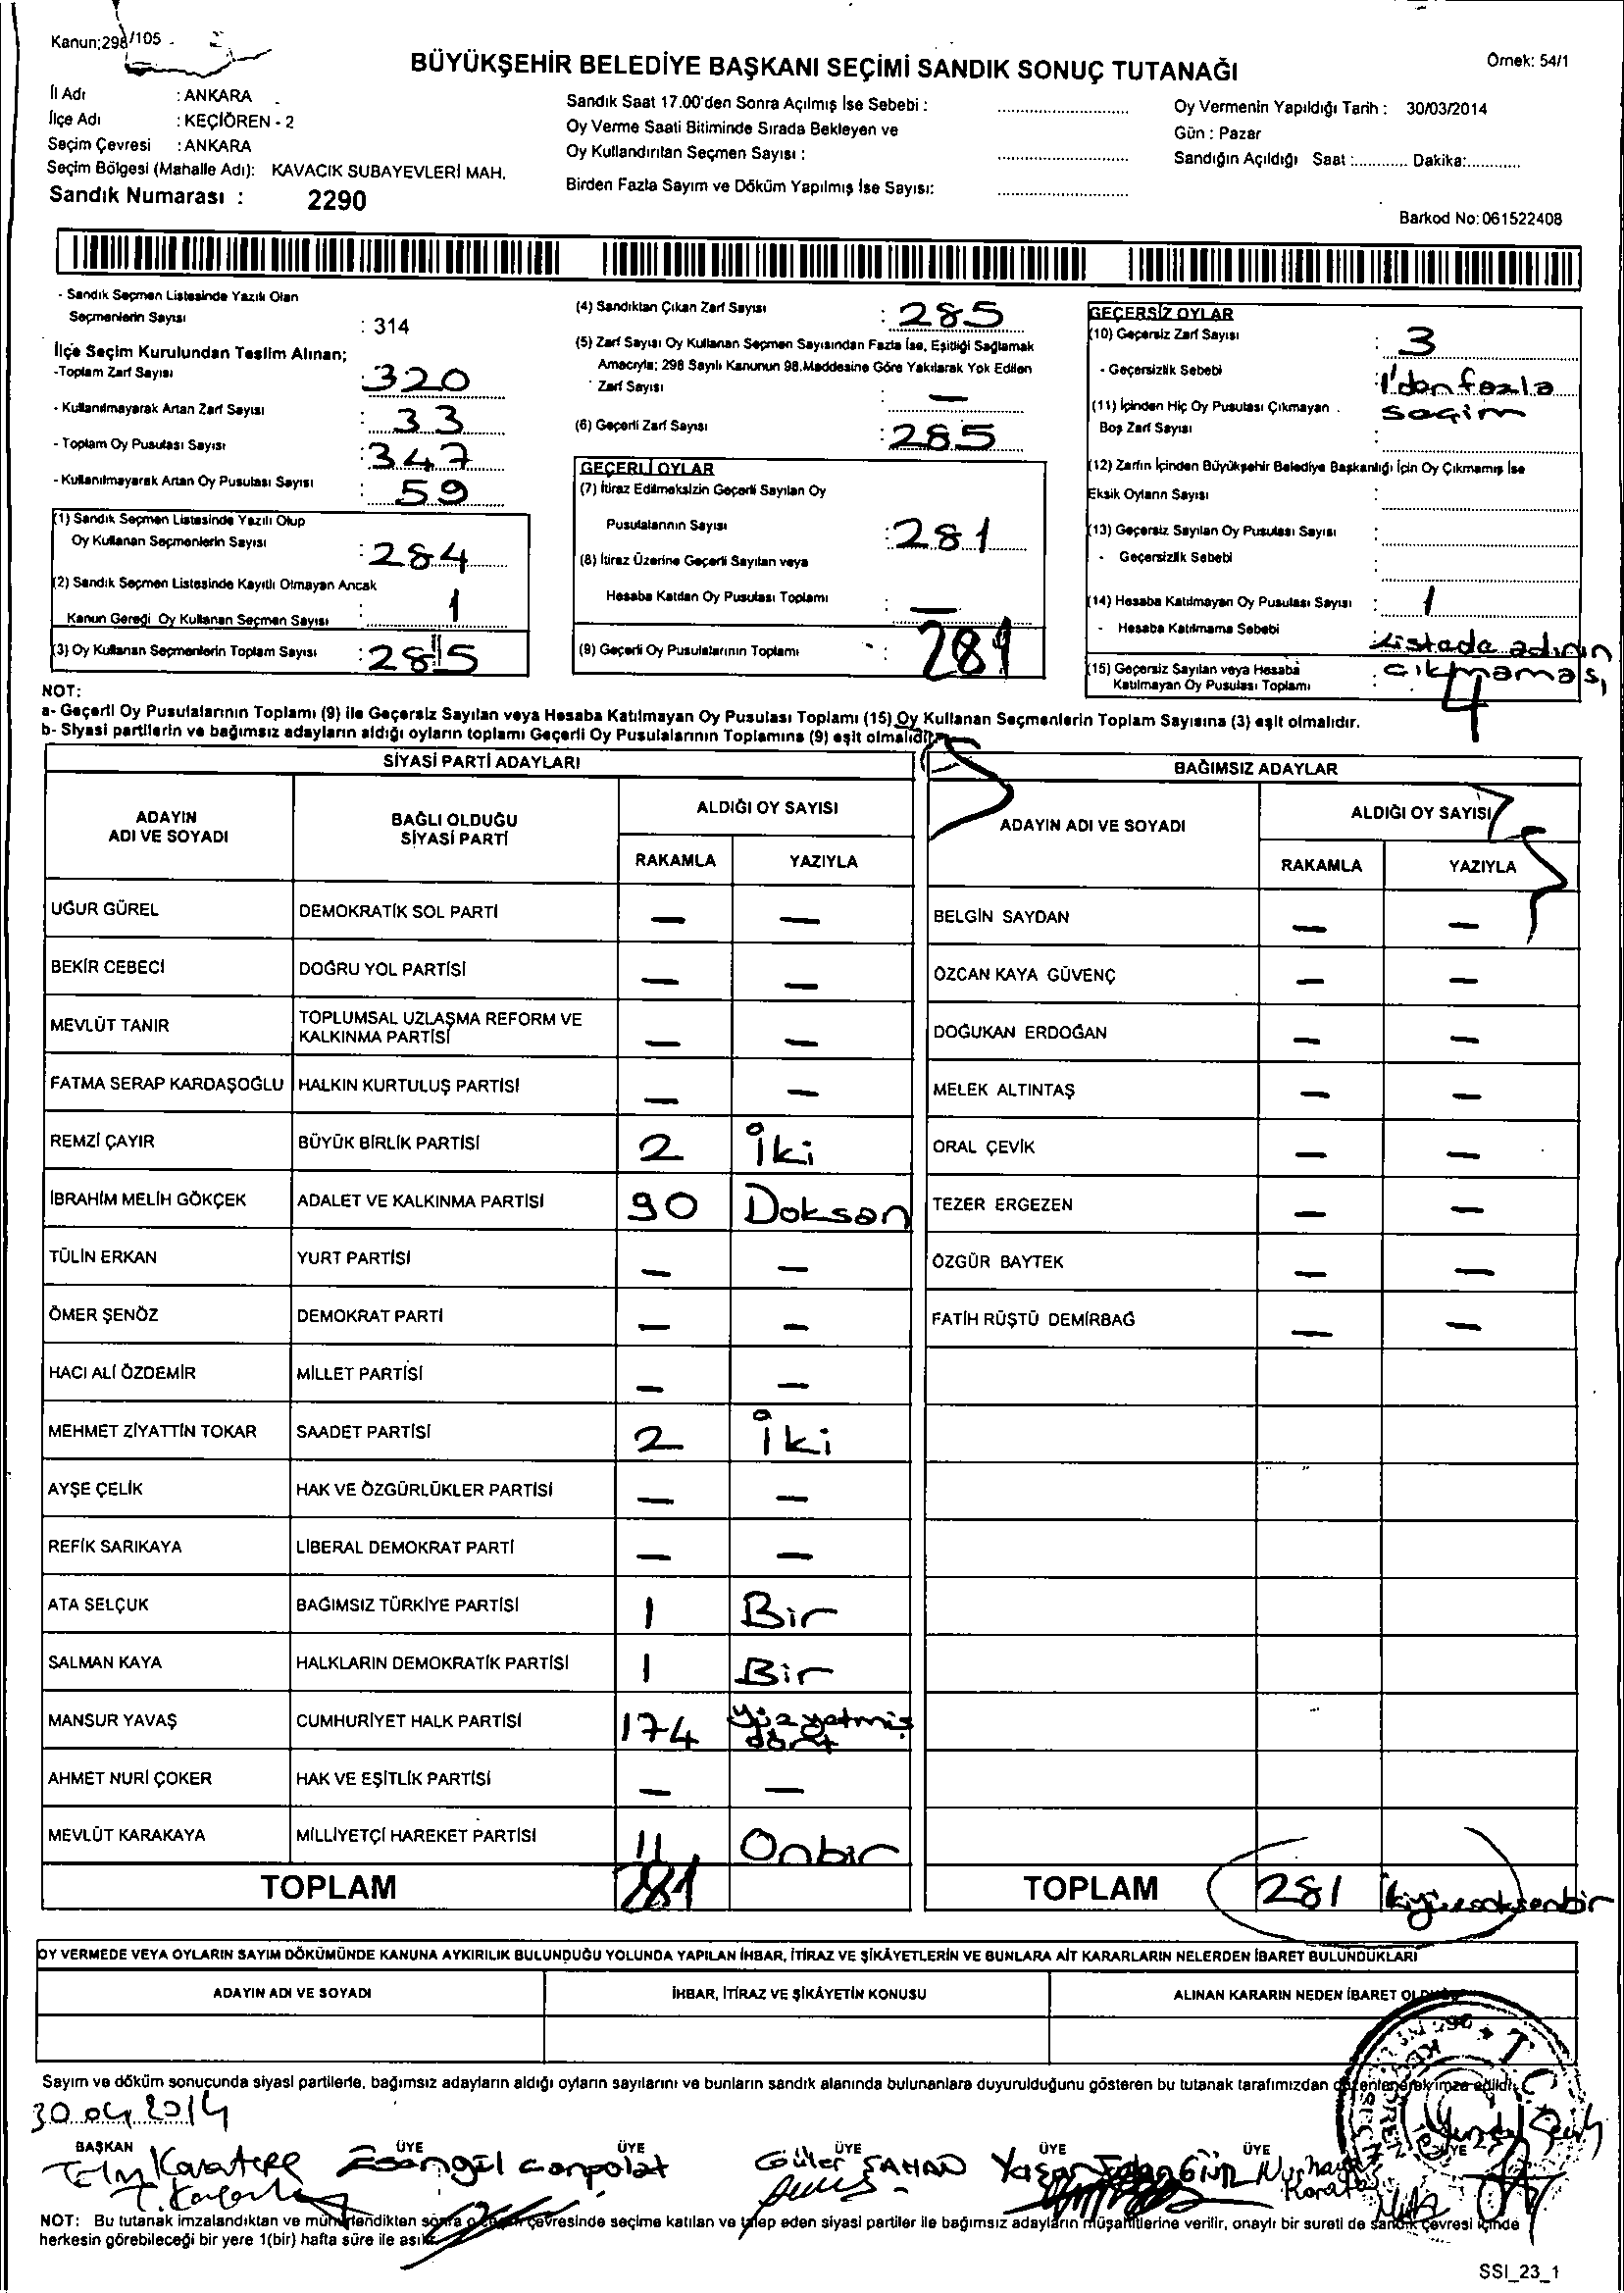 Kanun;298/105
BÜYÜKŞEHİR BELEDİYE BAŞKANI SEÇİMİ SANDIK SONUÇ TUTANAĞI
Örnek: 54/1
İl Adı : ANKARA
İlçe Adı : KEÇİÖREN - 2
Seçim Çevresi : ANKARA
Seçim Bölgesi (Mahalle Adı): KAVACIK SUBAYEVLERİ MAH.
Sandık Numarası : 2290
Sandık Saat 17.00'den Sonra Açılmış İse Sebebi :
Oy Verme Saati Bitiminde Sırada Bekleyen ve
Oy Kullandırılan Seçmen Sayısı :
Birden Fazla Sayım ve Döküm Yapılmış İse Sayısı:
Oy Vermenin Yapıldığı Tarih : 30/03/2014
Gün : Pazar
Sandığın Açıldığı Saat :............ Dakika:............
Barkod No: 061522408
- Sandık Seçmen Listesinde Yazılı Olan
Seçmenlerin Sayısı : 314
İlçe Seçim Kurulundan Teslim Alınan;
-Toplam Zarf Sayısı : 320
- Kullanılmayarak Artan Zarf Sayısı : 33
- Toplam Oy Pusulası Sayısı : 347
- Kullanılmayarak Artan Oy Pusulası Sayısı : 59
(1) Sandık Seçmen Listesinde Yazılı Olup
Oy Kullanan Seçmenlerin Sayısı : 284
(2) Sandık Seçmen Listesinde Kayıtlı Olmayan Ancak
Kanun Gereği Oy Kullanan Seçmen Sayısı : 1
(3) Oy Kullanan Seçmenlerin Toplam Sayısı : 285
(4) Sandıktan Çıkan Zarf Sayısı : 285
(5) Zarf Sayısı Oy Kullanan Seçmen Sayısından Fazla İse, Eşitliği Sağlamak
Amacıyla; 298 Sayılı Kanunun 98.Maddesine Göre Yakılarak Yok Edilen
Zarf Sayısı : —
(6) Geçerli Zarf Sayısı : 285
GEÇERLİ OYLAR
(7) İtiraz Edilmeksizin Geçerli Sayılan Oy
Pusulalarının Sayısı : 281
(8) İtiraz Üzerine Geçerli Sayılan veya
Hesaba Katılan Oy Pusulası Toplamı : —
(9) Geçerli Oy Pusulalarının Toplamı : 281
GEÇERSİZ OYLAR
(10) Geçersiz Zarf Sayısı : 3
- Geçersizlik Sebebi : 1'den fazla
seçim
(11) İçinden Hiç Oy Pusulası Çıkmayan
Boş Zarf Sayısı :
(12) Zarfın İçinden Büyükşehir Belediye Başkanlığı İçin Oy Çıkmamış İse
Eksik Oyların Sayısı :
(13) Geçersiz Sayılan Oy Pusulası Sayısı :
- Geçersizlik Sebebi
(14) Hesaba Katılmayan Oy Pusulası Sayısı : 1
- Hesaba Katılmama Sebebi : Listede adının
çıkmaması
(15) Geçersiz Sayılan veya Hesaba
Katılmayan Oy Pusulası Toplamı : 4
NOT:
a- Geçerli Oy Pusulalarının Toplamı (9) ile Geçersiz Sayılan veya Hesaba Katılmayan Oy Pusulası Toplamı (15) Oy Kullanan Seçmenlerin Toplam Sayısına (3) eşit olmalıdır.
b- Siyasi partilerin ve bağımsız adayların aldığı oyların toplamı Geçerli Oy Pusulalarının Toplamına (9) eşit olmalıdır.
SİYASİ PARTİ ADAYLARI
ADAYIN ADI VE SOYADI
BAĞLI OLDUĞU SİYASİ PARTİ
ALDIĞI OY SAYISI
RAKAMLA YAZIYLA
UĞUR GÜREL DEMOKRATİK SOL PARTİ — —
BEKİR CEBECİ DOĞRU YOL PARTİSİ — —
MEVLÜT TANIR TOPLUMSAL UZLAŞMA REFORM VE KALKINMA PARTİSİ — —
FATMA SERAP KARDAŞOĞLU HALKIN KURTULUŞ PARTİSİ — —
REMZİ ÇAYIR BÜYÜK BİRLİK PARTİSİ 2 İki
İBRAHİM MELİH GÖKÇEK ADALET VE KALKINMA PARTİSİ 90 Doksan
TÜLİN ERKAN YURT PARTİSİ — —
ÖMER ŞENÖZ DEMOKRAT PARTİ — —
HACI ALİ ÖZDEMİR MİLLET PARTİSİ — —
MEHMET ZİYATTİN TOKAR SAADET PARTİSİ 2 İki
AYŞE ÇELİK HAK VE ÖZGÜRLÜKLER PARTİSİ — —
REFİK SARIKAYA LİBERAL DEMOKRAT PARTİ — —
ATA SELÇUK BAĞIMSIZ TÜRKİYE PARTİSİ 1 Bir
SALMAN KAYA HALKLARIN DEMOKRATİK PARTİSİ 1 Bir
MANSUR YAVAŞ CUMHURİYET HALK PARTİSİ 174 Yüzyetmiş dört
AHMET NURİ ÇOKER HAK VE EŞİTLİK PARTİSİ — —
MEVLÜT KARAKAYA MİLLİYETÇİ HAREKET PARTİSİ 11 Onbir
TOPLAM 281
BAĞIMSIZ ADAYLAR
ADAYIN ADI VE SOYADI
ALDIĞI OY SAYISI
RAKAMLA YAZIYLA
BELGİN SAYDAN — —
ÖZCAN KAYA GÜVENÇ — —
DOĞUKAN ERDOĞAN — —
MELEK ALTINTAŞ — —
ORAL ÇEVİK — —
TEZER ERGEZEN — —
ÖZGÜR BAYTEK — —
FATİH RÜŞTÜ DEMİRBAĞ — —
TOPLAM 281 ikiyüzseksenbir
OY VERMEDE VEYA OYLARIN SAYIM DÖKÜMÜNDE KANUNA AYKIRILIK BULUNDUĞU YOLUNDA YAPILAN İHBAR, İTİRAZ VE ŞİKÂYETLERİN VE BUNLARA AİT KARARLARIN NELERDEN İBARET BULUNDUKLARI
ADAYIN ADI VE SOYADI
İHBAR, İTİRAZ VE ŞİKÂYETİN KONUSU
ALINAN KARARIN NEDEN İBARET OLDUĞU
Sayım ve döküm sonucunda siyasi partilerle, bağımsız adayların aldığı oyların sayılarını ve bunların sandık alanında bulunanlara duyurulduğunu gösteren bu tutanak tarafımızdan düzenlenerek imza edildi.
30.04.2014
BAŞKAN ÜYE ÜYE ÜYE ÜYE ÜYE ÜYE
Karatepe Canpolat Güler ŞAHAN Yaşar
NOT: Bu tutanak imzalandıktan ve mühürlendikten sonra o seçim çevresinde seçime katılan ve talep eden siyasi partiler ile bağımsız adayların müşahitlerine verilir, onaylı bir sureti de sandık çevresi içinde
herkesin görebileceği bir yere 1(bir) hafta süre ile asılır.
SSI_23_1